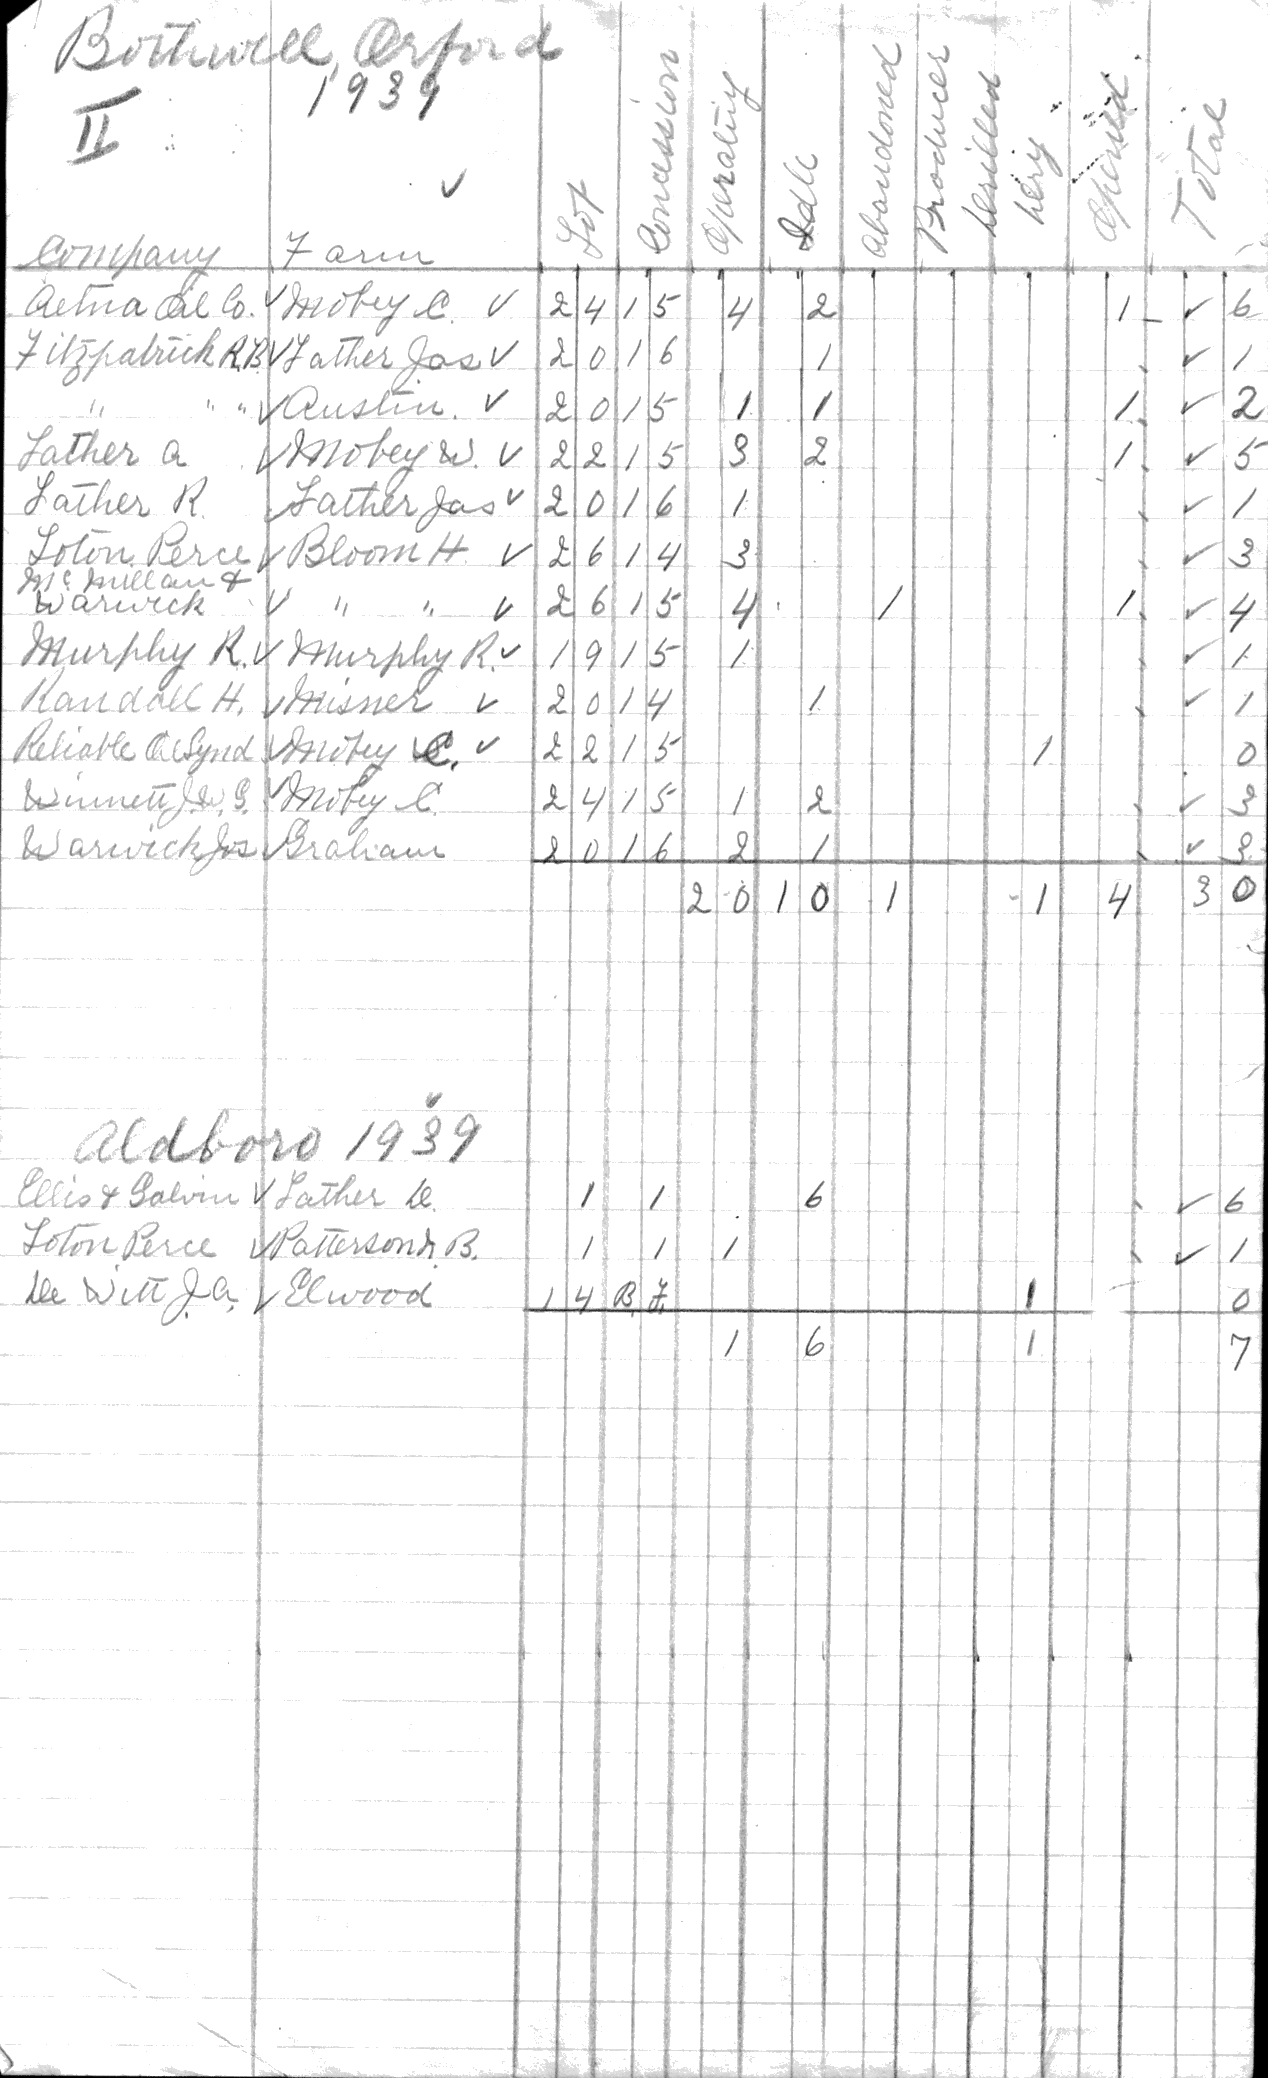 Bothwell, Orford
1939
II
✓
Company Farm Lot Concession Operating Idle Abandoned Producer Drilled Dry Opened Total
Aetna Oil Co. ✓ Mobey C. ✓ 24 15 4 2 1 ✓ 6
Fitzpatrick R.B. ✓ Lather Jas ✓ 20 16 1 ✓ 1
" " " ✓ Austin. ✓ 20 15 1 1 1 ✓ 2
Lather A ✓ Mobey W. ✓ 22 15 3 2 1 ✓ 5
Lather R. Lather Jas ✓ 20 16 1 ✓ 1
Loton Perce ✓ Bloom H. ✓ 26 14 3 ✓ 3
McMillan &
Warwick ✓ " " ✓ 26 15 4 1 1 ✓ 4
Murphy R. ✓ Murphy R. ✓ 19 15 1 ✓ 1
Randall H. ✓ Misner ✓ 20 14 1 ✓ 1
Reliable Oil Synd ✓ Mobey C. ✓ 22 15 1 0
Winnett J.W.G. ✓ Mobey C. 24 15 1 2 ✓ 3
Warwick Jos ✓ Graham 20 16 2 1 ✓ 3
20 10 1 1 4 30
✓
Aldboro 1939
Ellis & Galvin ✓ Lather D. 1 1 6 ✓ 6
Loton Perce ✓ Patterson B. 1 1 1 ✓ 1
De Witt J.A. ✓ Elwood 14 B.F. 1 0
1 6 1 7